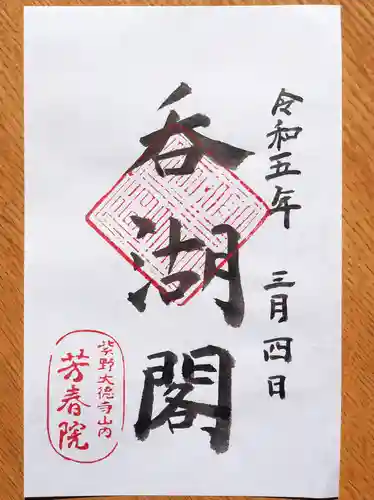 令和五年 三月四日
呑湖閣
紫野大徳寺山内
芳春院